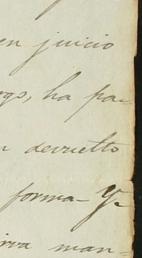 en juicio
ogo, ha pa-
n devuelto
forma y
irva man-